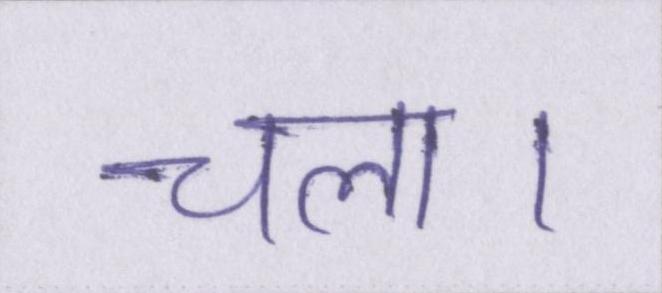 चला।